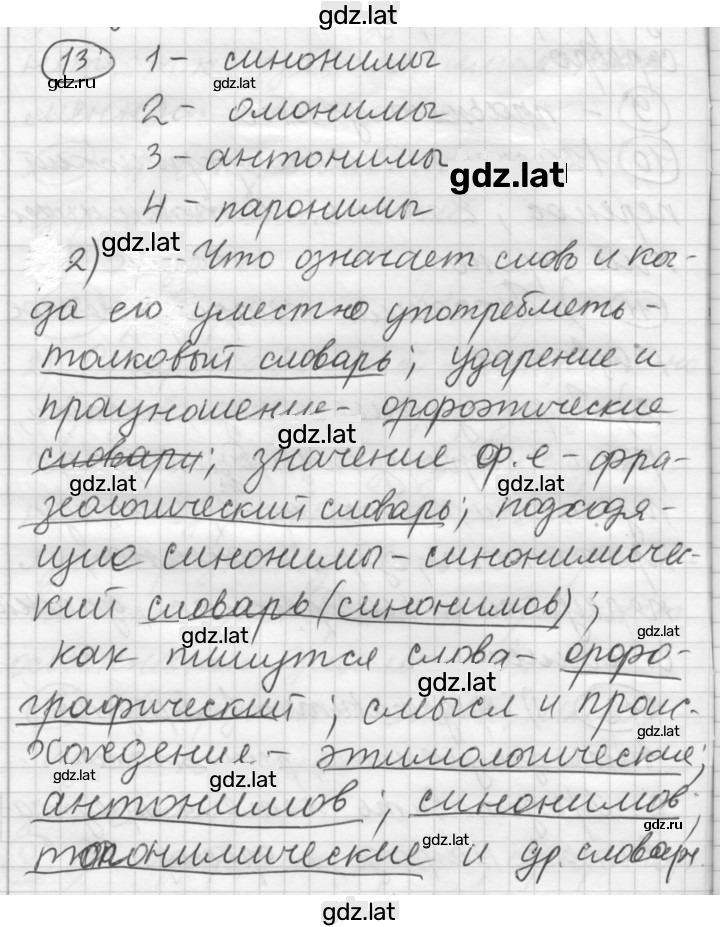 gdz.lat
13 1 - синонимы
gdz.ru gdz.lat
2 - омонимы
3 - антонимы
gdz.lat
4 - паронимы
gdz.lat
2) - Что означает слово и ко-
да его уместно употреблеть -
толковый словарь; ударение и
произношение - орфоэтические
gdz.lat
словари; значение ф.е - фра-
gdz.lat gdz.lat
зеологический словарь; подходя-
щие синонимы - синонимичес-
кий словарь (синонимов);
gdz.lat gdz.lat
как пишутся слова - орфо-
gdz.lat
графический; смысл и проис-
gdz.lat
хождение - этимологические;
gdz.lat gdz.lat
антонимов; синонимов;
gdz.lat gdz.ru
топонимические и др. словари
gdz.lat